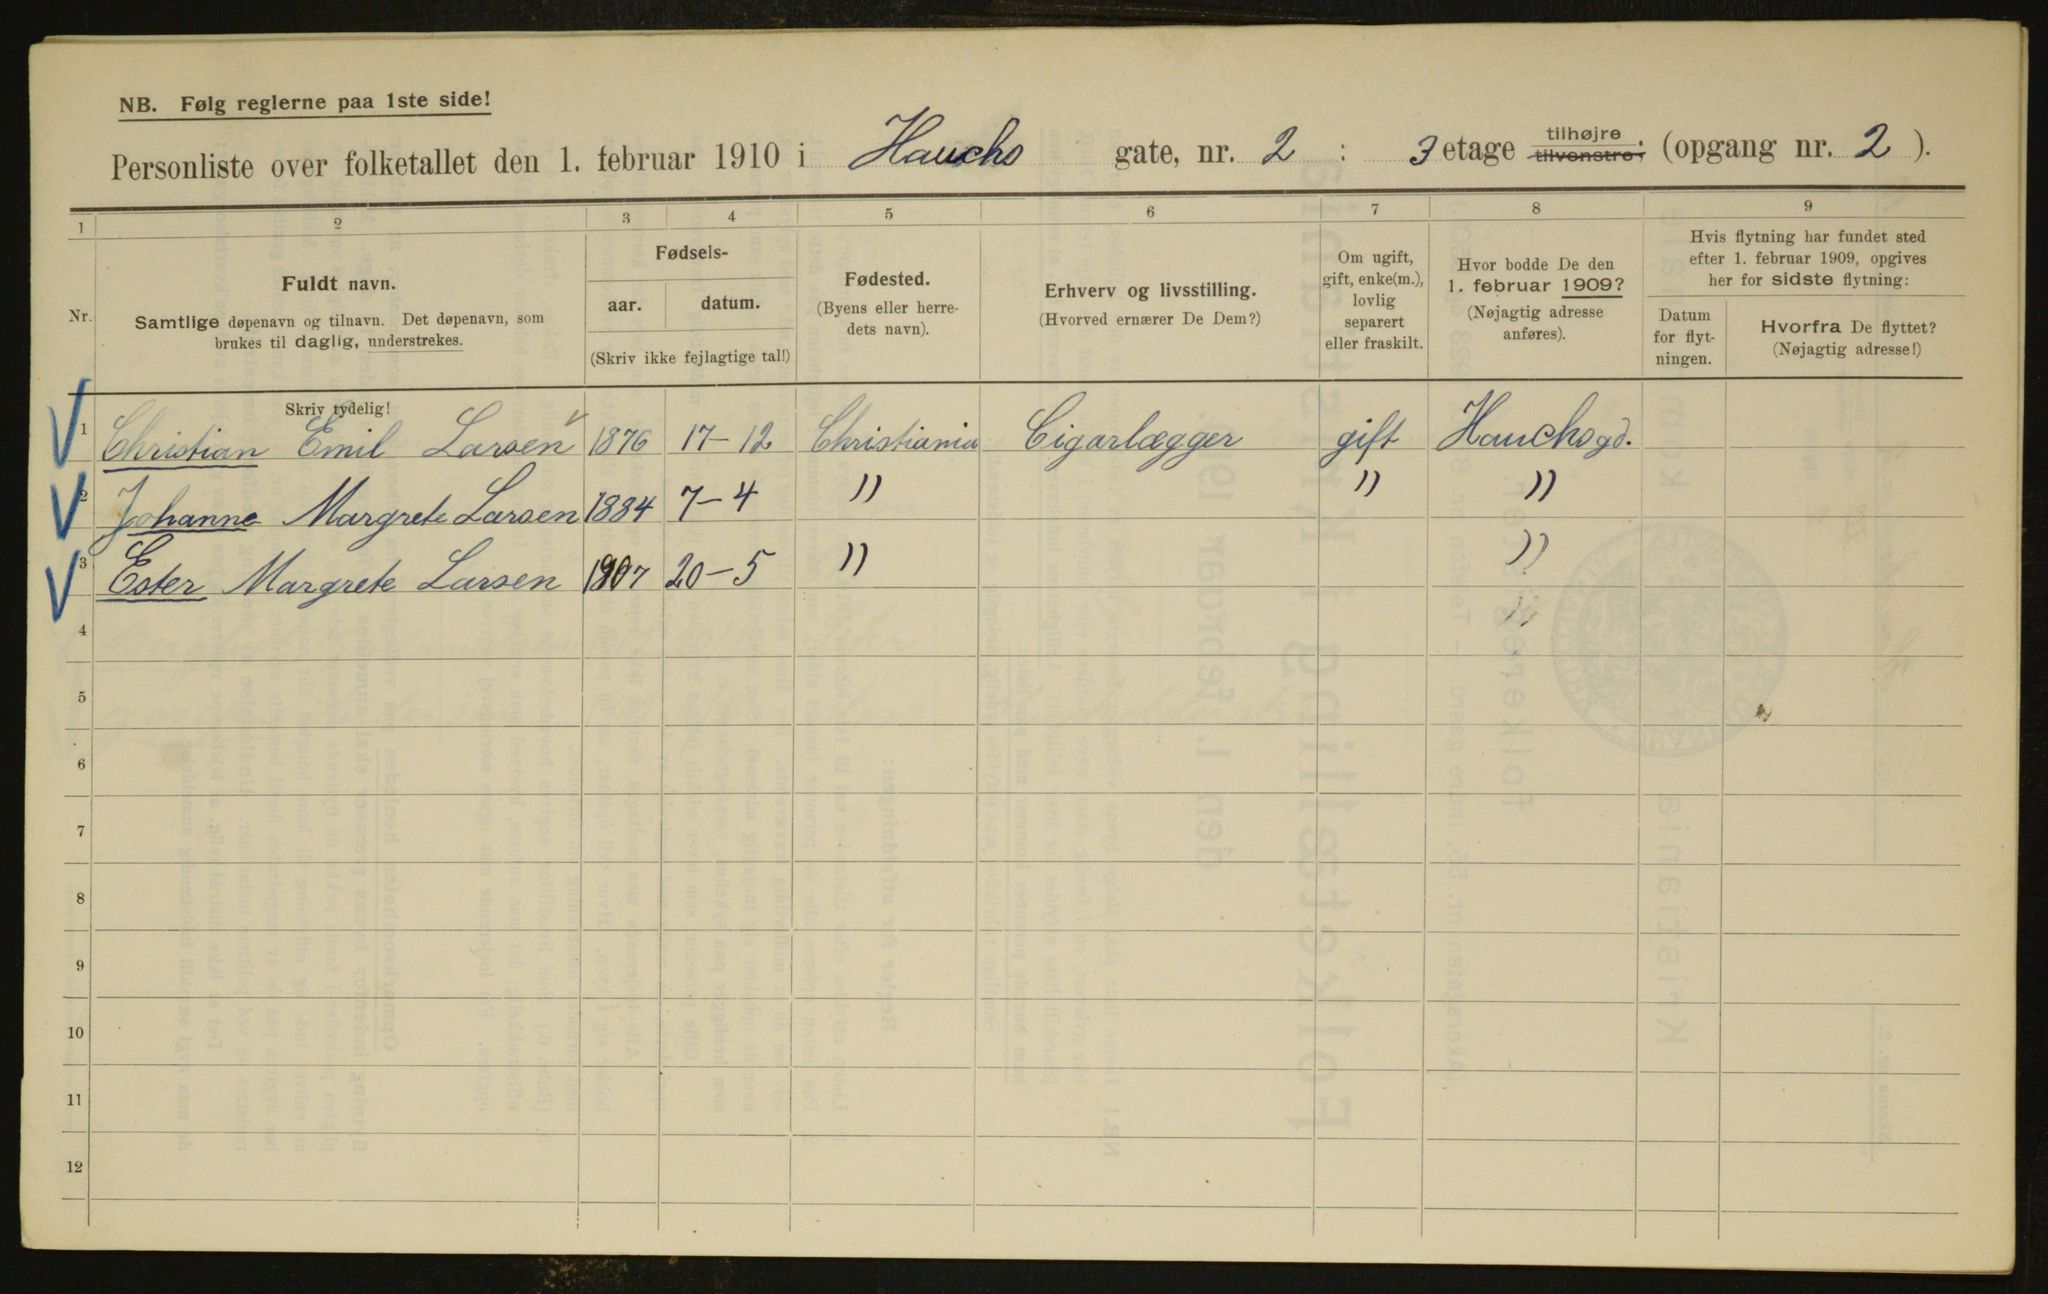 NB. Følg reglerne paa 1ste side!
Personliste over folketallet den 1. februar 1910 i Hauchs gate, nr. 2 : 3 etage tilhøjre tilvenstre: (opgang nr. 2 ).
1 2 3 4 5 6 7 8 9
Nr.
Fuldt navn.
Samtlige døpenavn og tilnavn. Det døpenavn, som
brukes til daglig, understrekes.
Fødsels-
aar. datum.
(Skriv ikke fejlagtige tal!)
Fødested.
(Byens eller herre-
dets navn).
Erhverv og livsstilling.
(Hvorved ernærer De Dem?)
Om ugift,
gift, enke(m.),
lovlig
separert
eller fraskilt.
Hvor bodde De den
1. februar 1909?
(Nøjagtig adresse
anføres).
Hvis flytning har fundet sted
efter 1. februar 1909, opgives
her for sidste flytning:
Datum
for flyt-
ningen.
Hvorfra De flyttet?
(Nøjagtig adresse!)
Skriv tydelig!
1 Christian Emil Larsen 1876 17-12 Christiania Cigarlægger gift Hauchsgd.
2 Johanne Margrete Larsen 1884 7-4 " " "
3 Ester Margrete Larsen 1907 20-5 " "
4
5
6
7
8
9
10
11
12